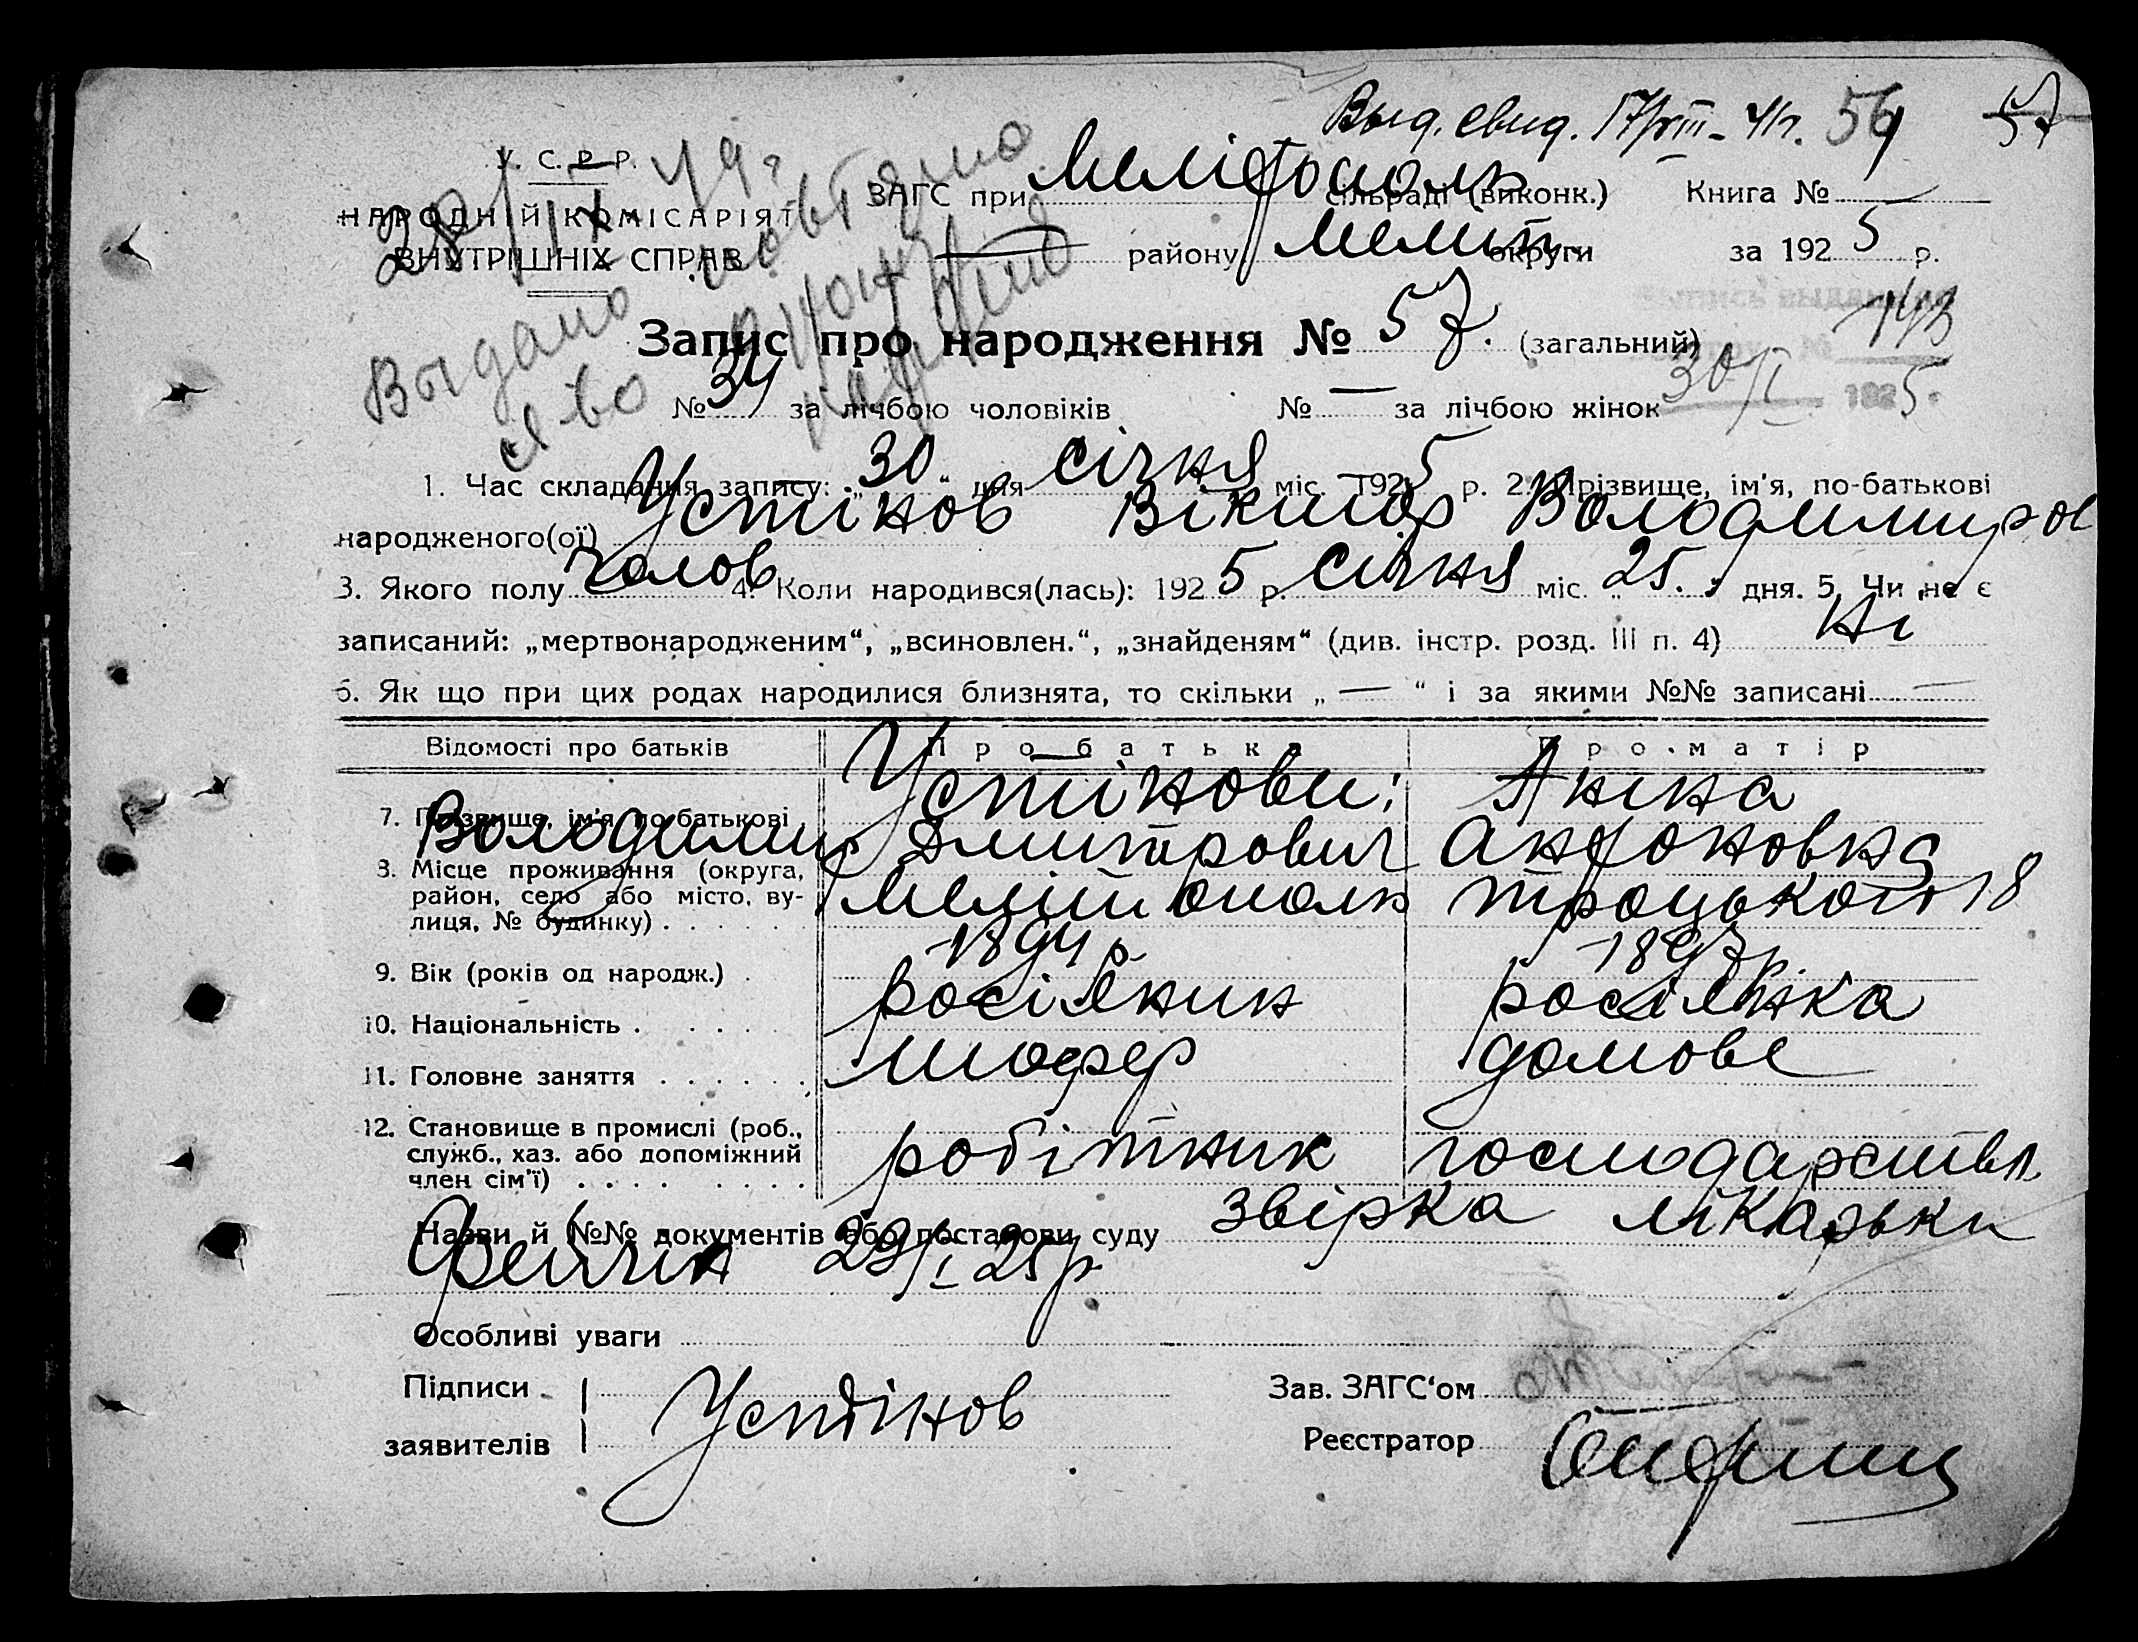 Выд. свид. 17/VIII-41г. 54 57
У. С. Р. Р.
НАРОДНІЙ КОМІСАРІЯТ
ВНУТРІШНІХ СПРАВ
28/IX 49г
Выдано повторно
св-во о рождении
ЗАГС при Мелітополь сільраді (виконк.) Книга №
— району Мелит. округи за 1925 р.
Запис про народження № 57. (загальний)
Выпись выдана 143
30/I 1925.
№ 34 за лічбою чоловіків № — за лічбою жінок
1. Час складання запису: „30“ дня січня міс. 1925 р. 2. Прізвище, ім'я, по-батькові
народженого(ої) Устінов Віктор Володимиров
3. Якого полу чолов 4. Коли народився(лась): 1925 р. січня міс. „25.“ дня. 5. Чи не є
записаний: „мертвонародженим“, „всиновлен.“, „знайденям“ (див. інстр. розд. III п. 4) Ні
6. Як що при цих родах народилися близнята, то скільки „ — “ і за якими №№ записані —
Відомості про батьків Про батька Про матір
7. Прізвище, ім'я, по-батькові Устінови: Анна
Володимир Дмитрович Антоновна
8. Місце проживання (округа, район, село або місто, вулиця, № будинку) Мелітополь Троцького 18
9. Вік (років од народж.) 1894 р. 1897 р.
10. Національність росіянин росіянка
11. Головне заняття шофер домове
12. Становище в промислі (роб., служб., хаз. або допоміжний член сім'ї) робітник господарство
Назви й №№ документів або постанови суду звірка лікарьки
29/I 25р.
Особливі уваги
Підписи Зав. ЗАГС'ом
заявителів Устінов Реєстратор